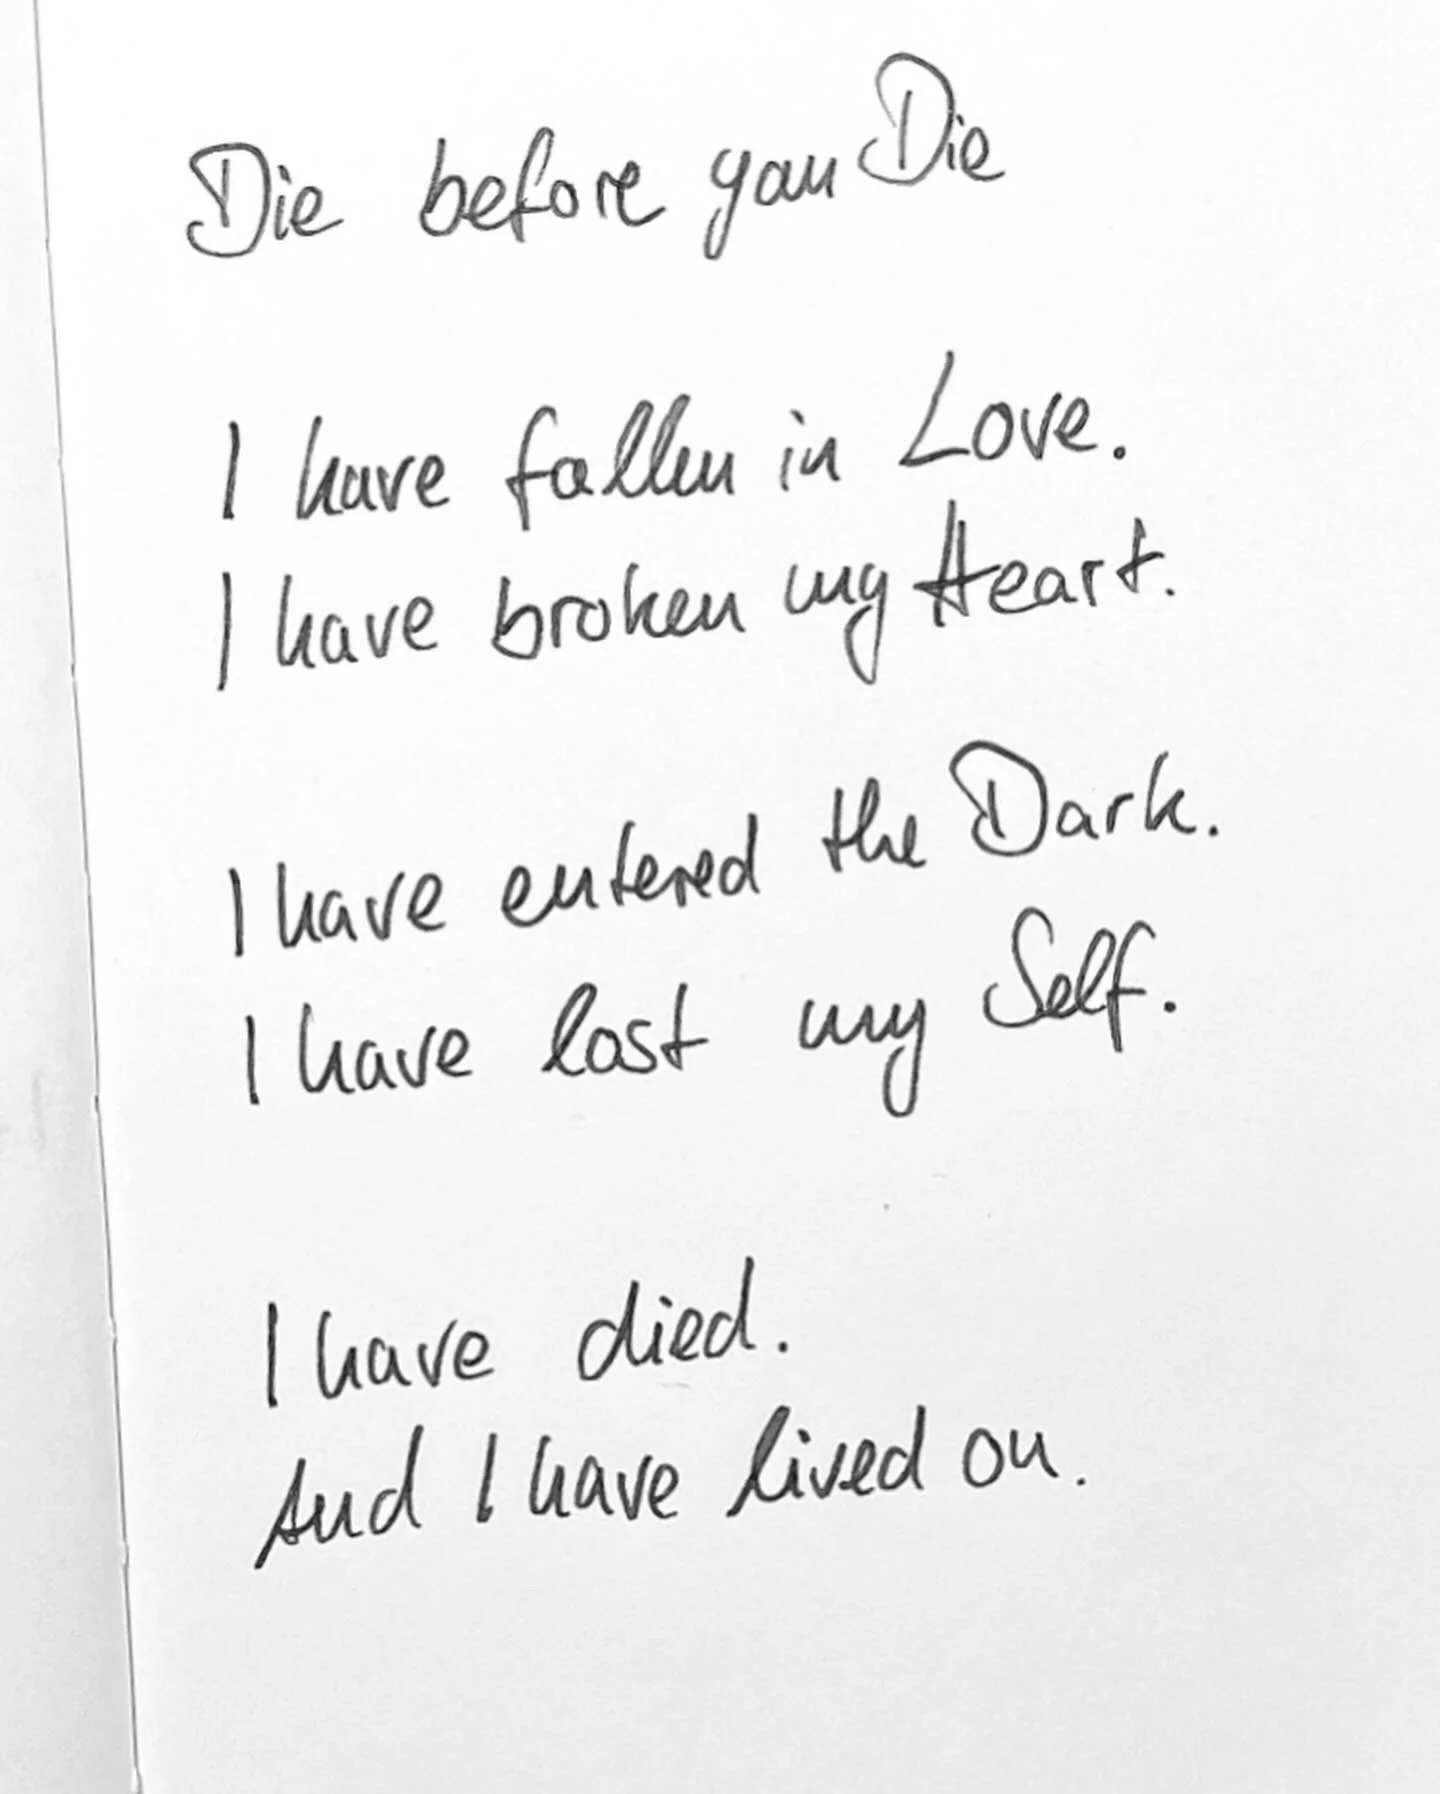 Die before you Die
I have fallen in Love.
I have broken my Heart.
I have entered the Dark.
I have lost my Self.
I have died.
And I have lived on.